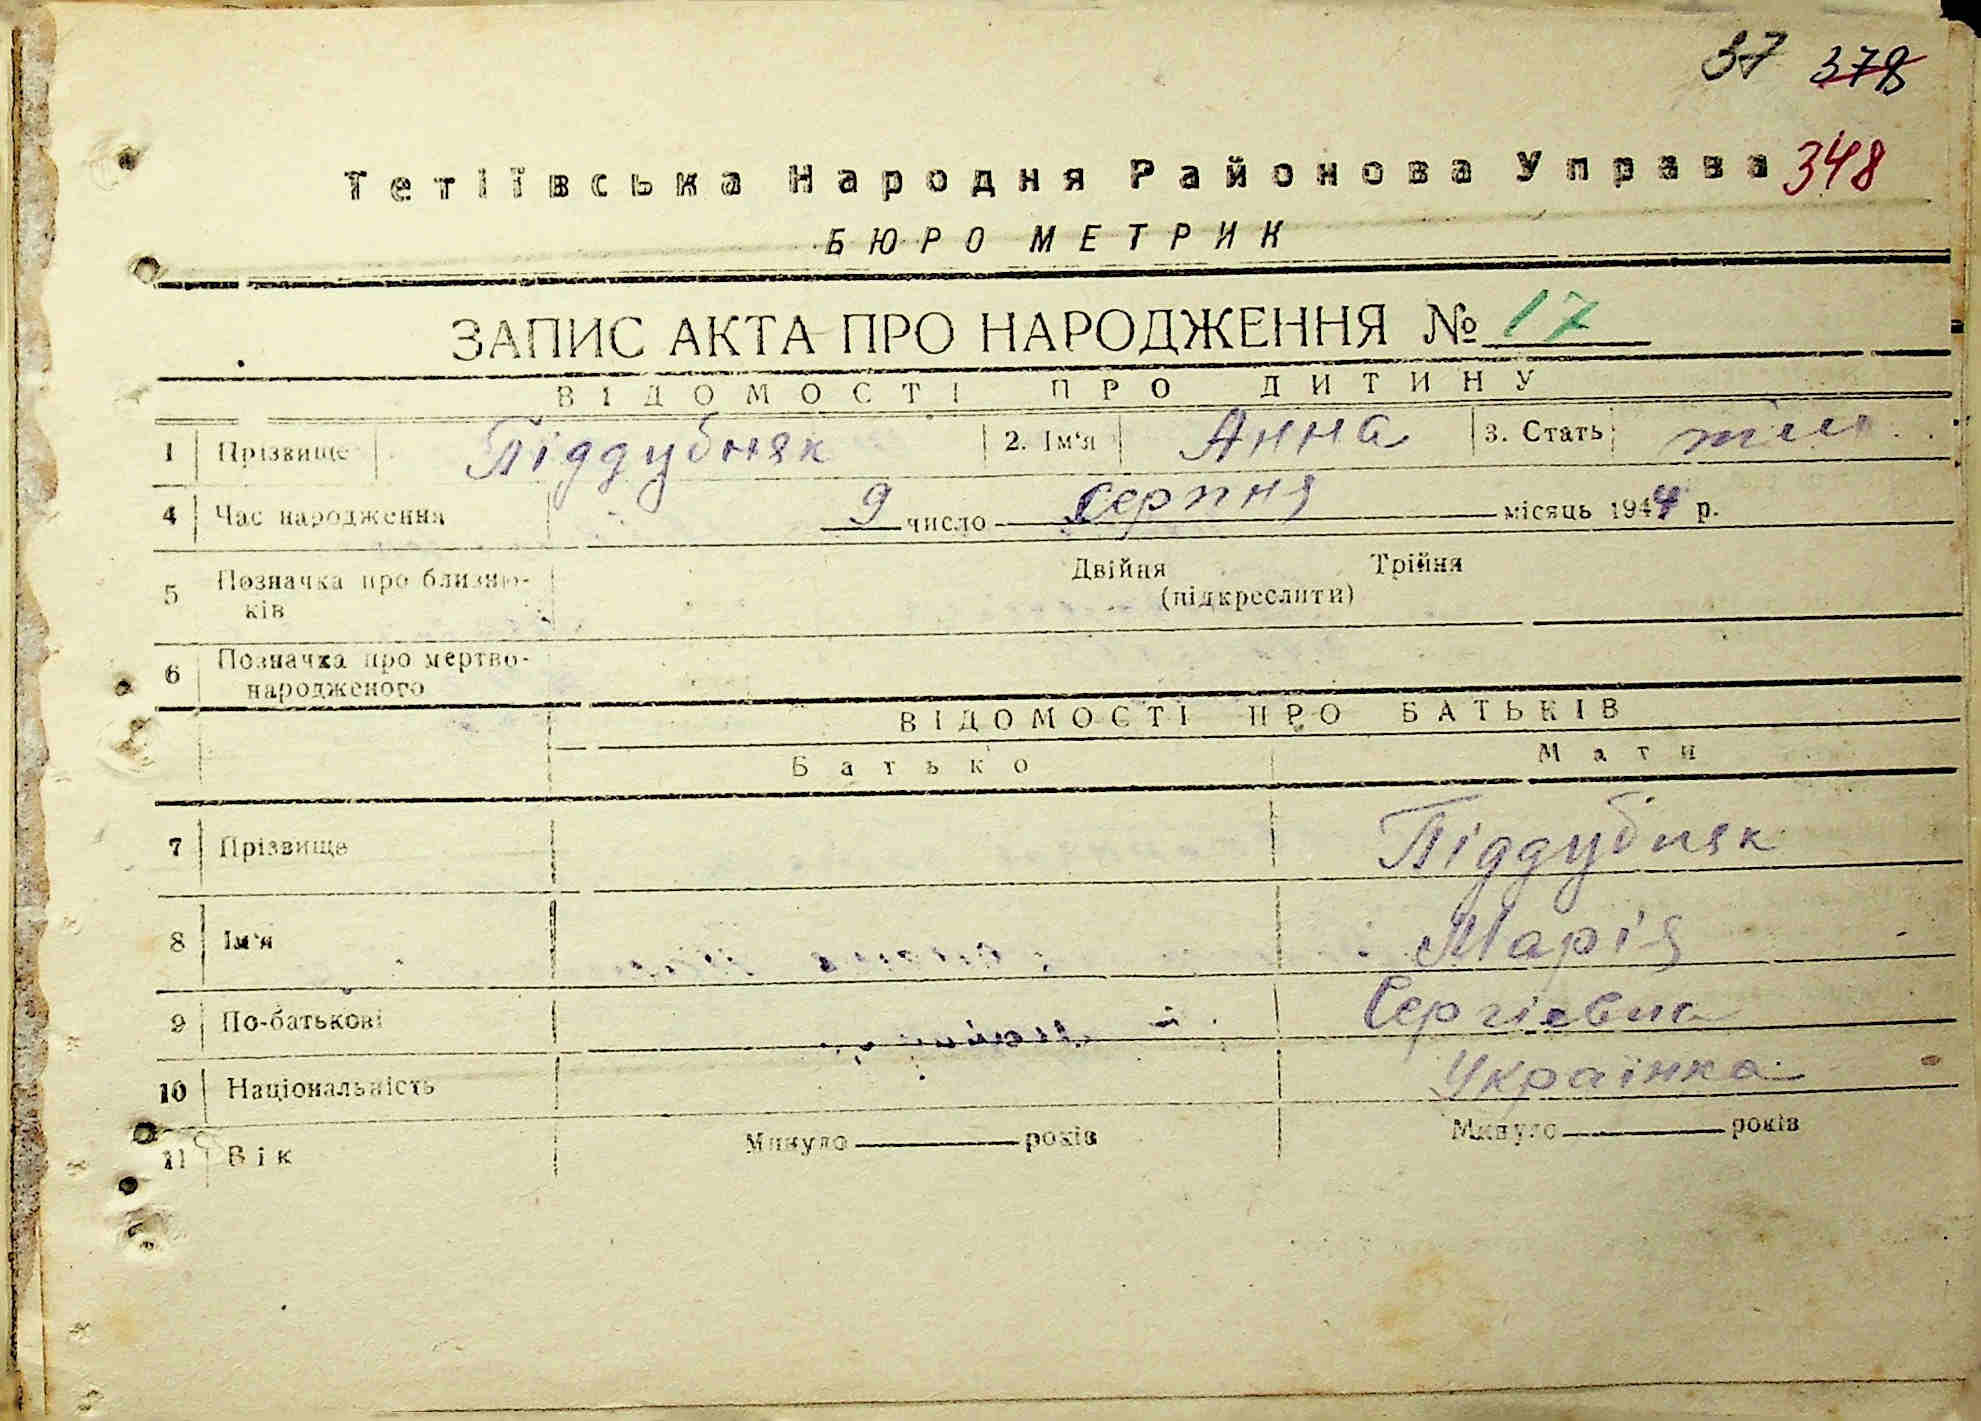 37 378
Тетіївська Народня Районова Управа 348
БЮРО МЕТРИК
ЗАПИС АКТА ПРО НАРОДЖЕННЯ № 17
ВІДОМОСТІ ПРО ДИТИНУ
1 Прізвище Піддубняк 2. Ім'я Анна 3. Стать
4 Час народження 9 число Серпня місяць 1944 р.
5 Позначка про близню- Двійня Трійня
ків (підкреслити)
6 Позначка про мертво-
народженого
ВІДОМОСТІ ПРО БАТЬКІВ
Батько Мати
7 Прізвище Піддубняк
8 Ім'я Марія
9 По-батькові Сергіевна
10 Національність Українка
11 Вік Минуло років Минуло років